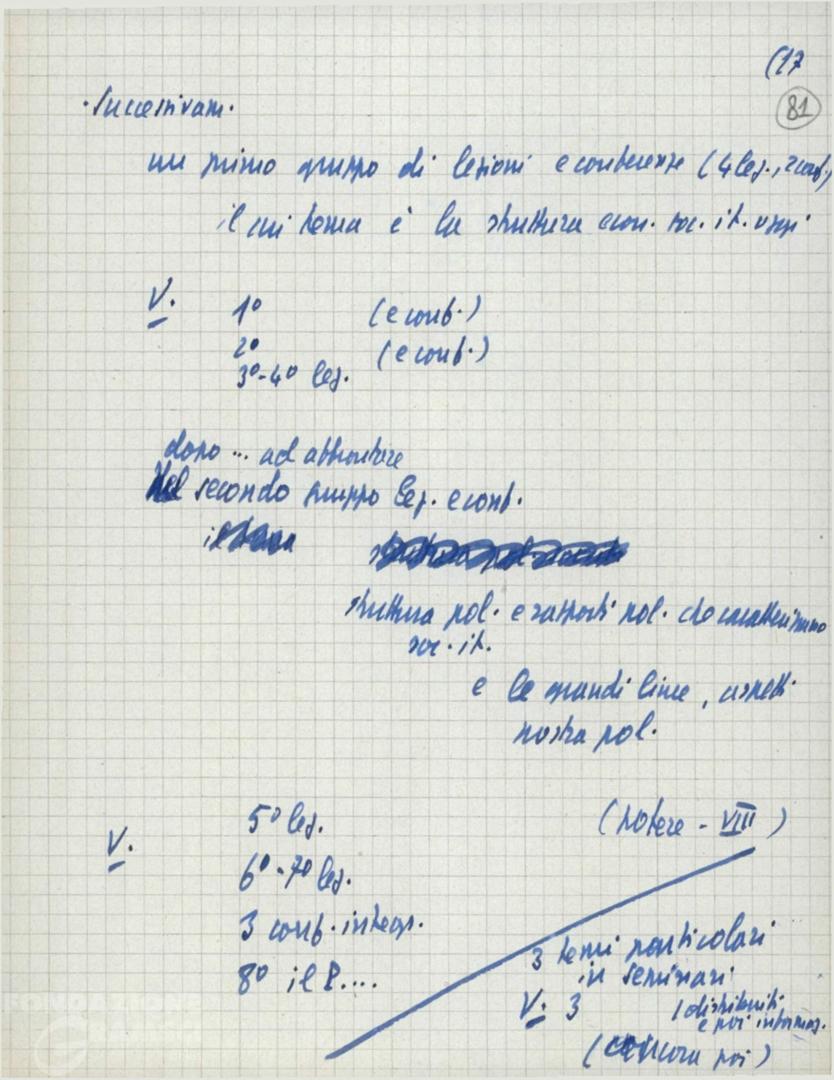 (17
81
·Successivam.
un primo gruppo di lezioni e conferenze (4 lez., 2 conf.)
il cui tema è la struttura econ. soc. it. oggi
V. 1º (e conf.)
2º (e conf.)
3º-4º lez.
dopo ... ad affrontare
Nel secondo gruppo lez. e conf.
struttura pol. e rapporti pol. che caratterizzano
soc. it.
e le grandi linee, aspetti
nostra pol.
V. 5º lez. (potere - VIII)
6º-7º lez.
3 conf. integr.
8º il P....
3 temi particolari
in seminari
V. 3 (distribuiti
e poi informaz.
(ancora poi)
FONDAZIONE